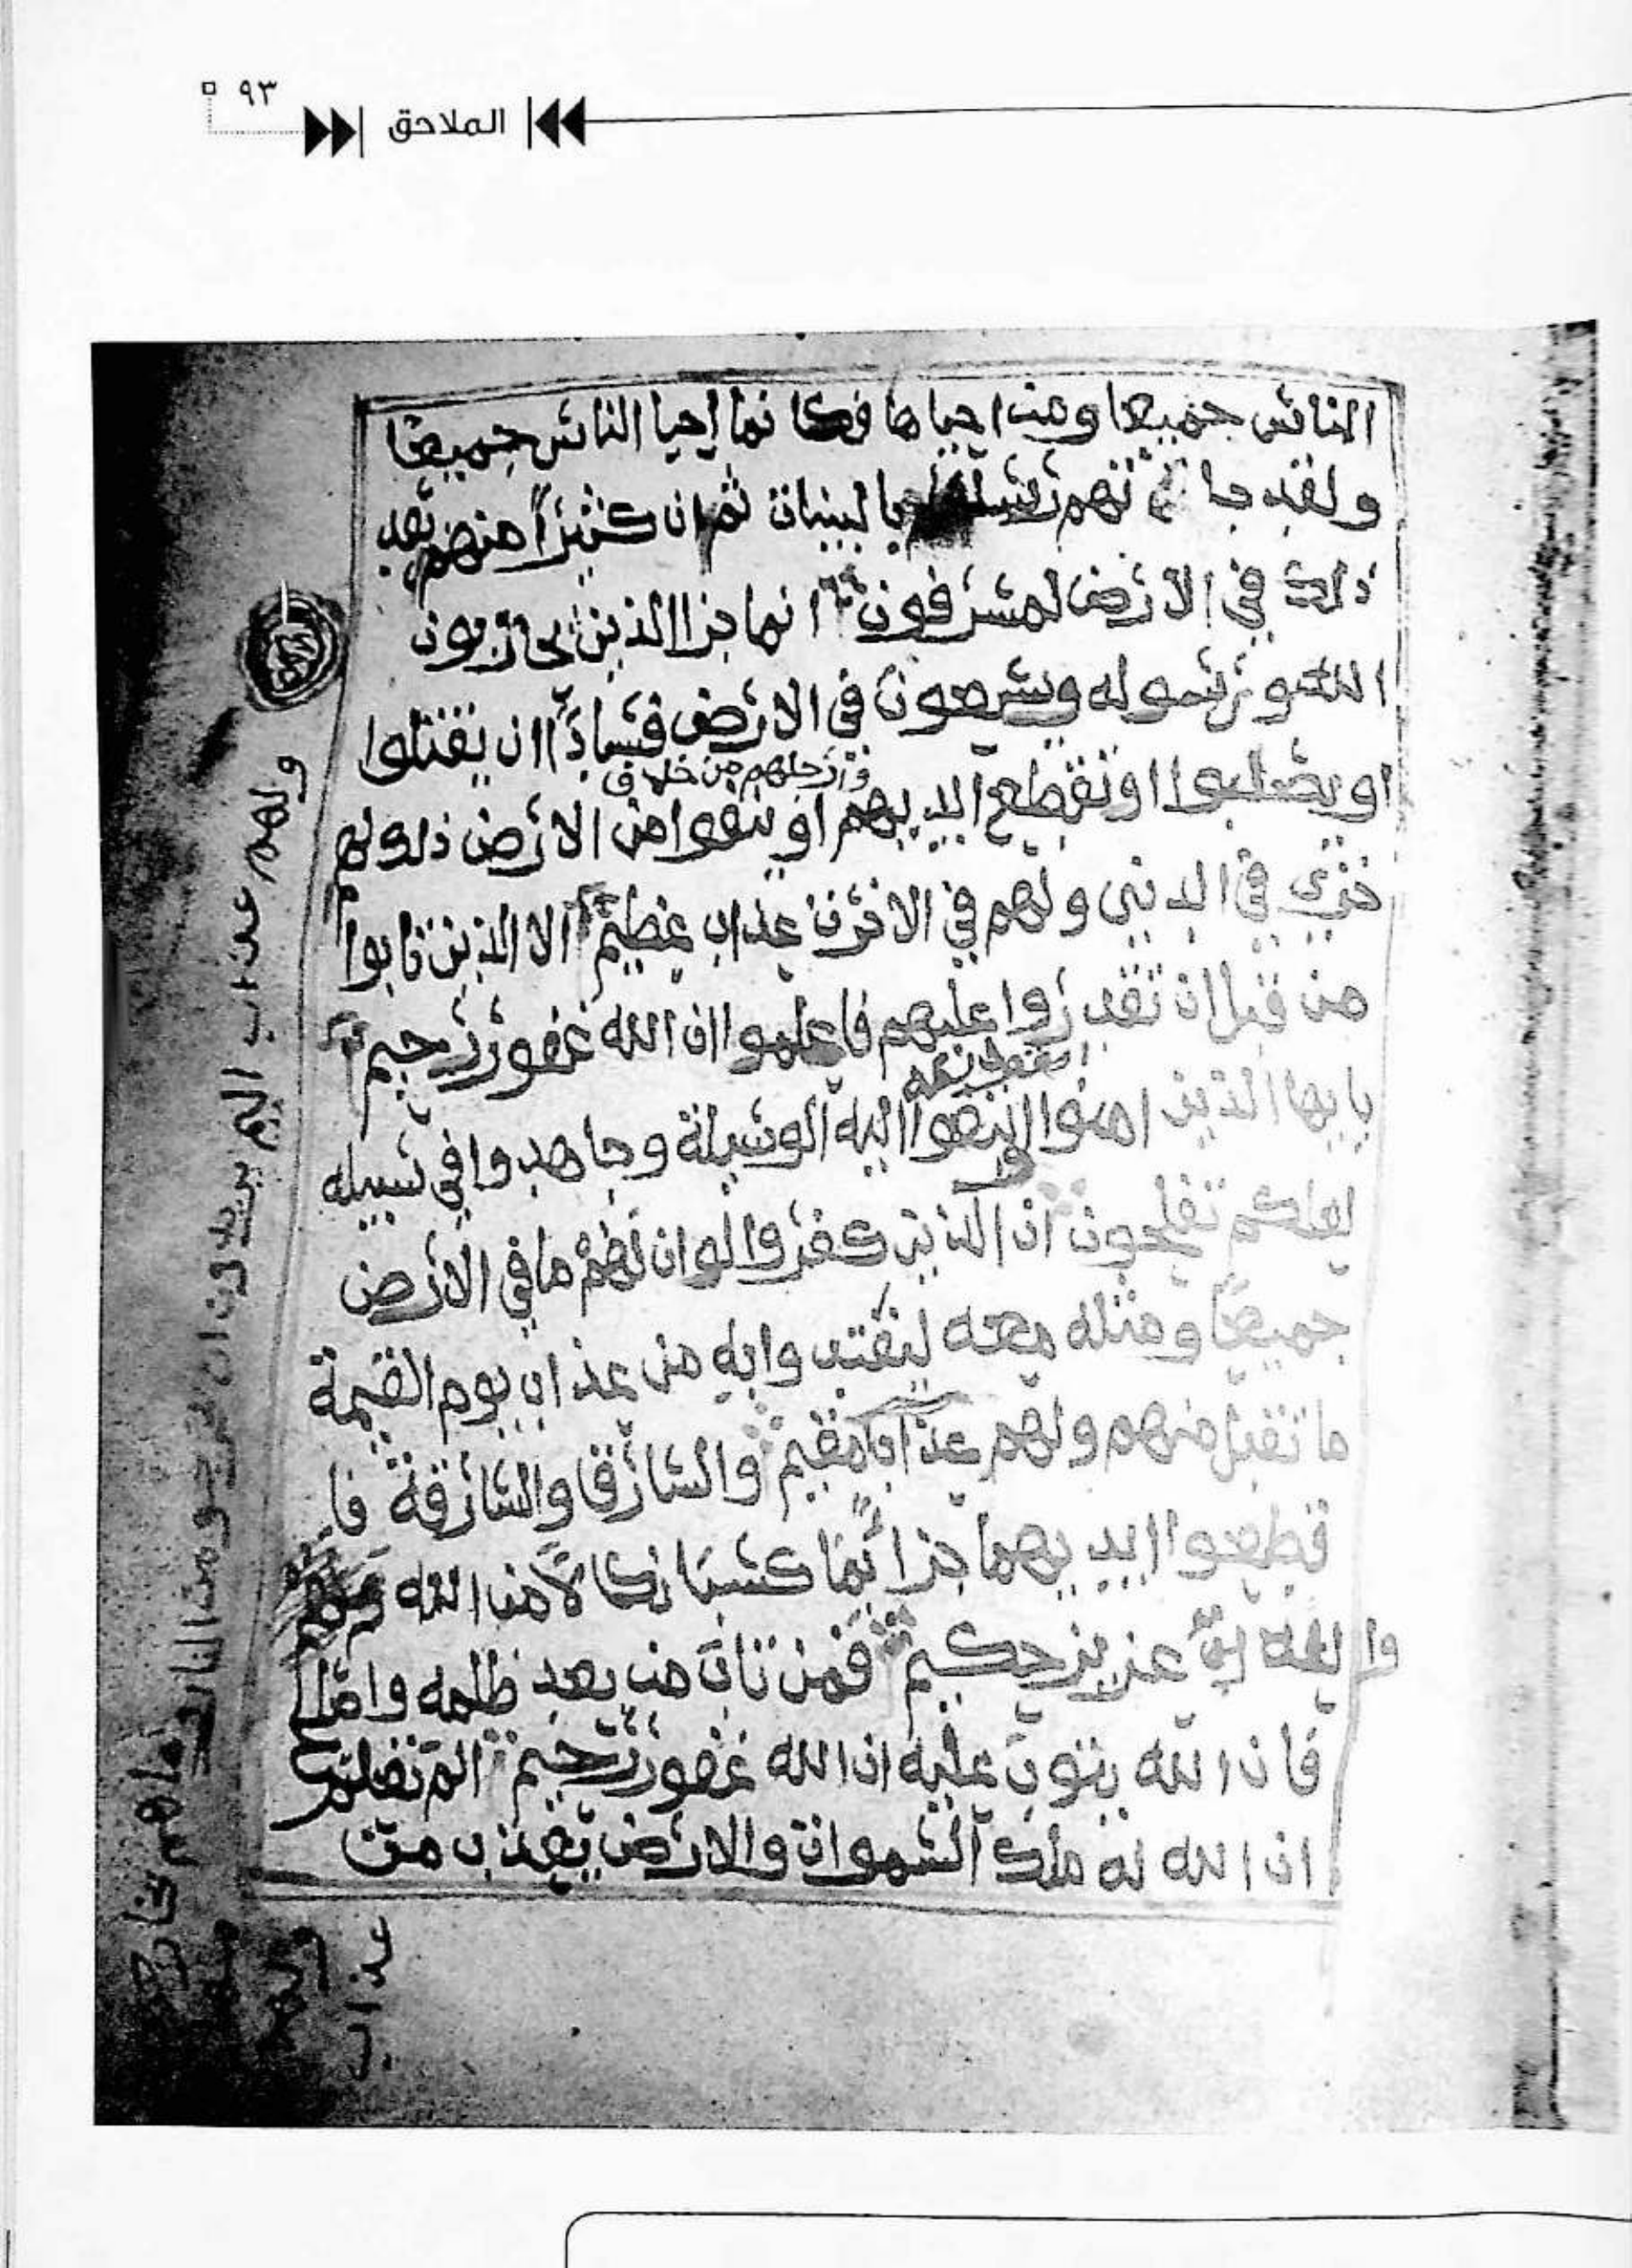 ٩٣
الملاحق
الناس جميعا ومن احياها فكا نما احيا الناس جميعا
ولقد جا تهم رسلنا بالبينات ثم ان كثيراً منهم بعد
ذلك في الارض لمسرفون انما جزا الذين يحاربون
الله ورسوله ويسعون في الارض فساداً ان يقتلوا
وارجلهم من خلاف
او يصلبوا او تقطع ايديهم او ينفوا من الارض ذلك لهم
خزي في الدنيى ولهم في الاخرة عذاب عظيم الا الذين تابوا
من قبل ان تقدروا عليهم فاعلموا ان الله غفور رحيم
يايها الذين امنوا ابتغوا اليه الوسيلة وجاهدوا في سبيله
لعلكم تفلحون ان الذين كفروا لو ان لهم ما في الارض
جميعا ومثله معه ليفتدوا به من عذاب يوم القيمة
ما تقبل منهم ولهم عذاب مقيم والسارق والسارقة فا
قطعوا ايديهما جزا بما كسبا نكالا من الله
والله عزيز حكيم فمن تاب من بعد ظلمه واصلح
فان الله يتوب عليه ان الله غفور رحيم الم تعلم
ان الله له ملك السموات والارض يعذب من
ولهم عذاب اليم يريدون ان يخرجو من النار وما هم بخارجين
منها
ولهم
عذاب